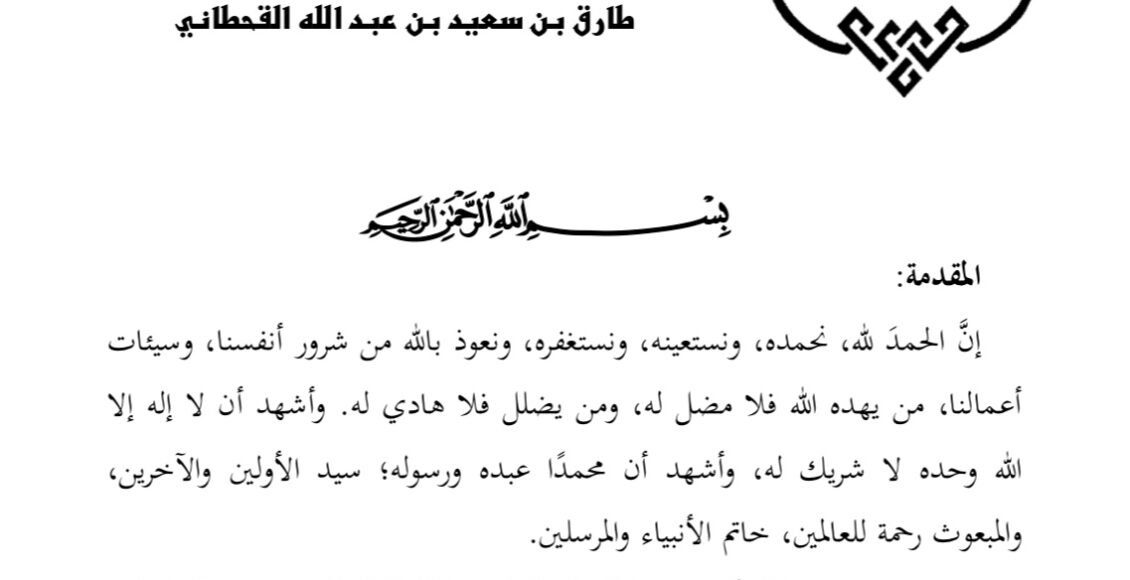 طارق بن سعيد بن عبد الله القحطاني
بِسْمِ اللَّهِ الرَّحْمَٰنِ الرَّحِيمِ
المقدمة:
إنَّ الحمدَ لله، نحمده، ونستعينه، ونستغفره، ونعوذ بالله من شرور أنفسنا، وسيئات
أعمالنا، من يهده الله فلا مضل له، ومن يضلل فلا هادي له. وأشهد أن لا إله إلا
الله وحده لا شريك له، وأشهد أن محمدًا عبده ورسوله؛ سيد الأولين والآخرين،
والمبعوث رحمة للعالمين، خاتم الأنبياء والمرسلين.